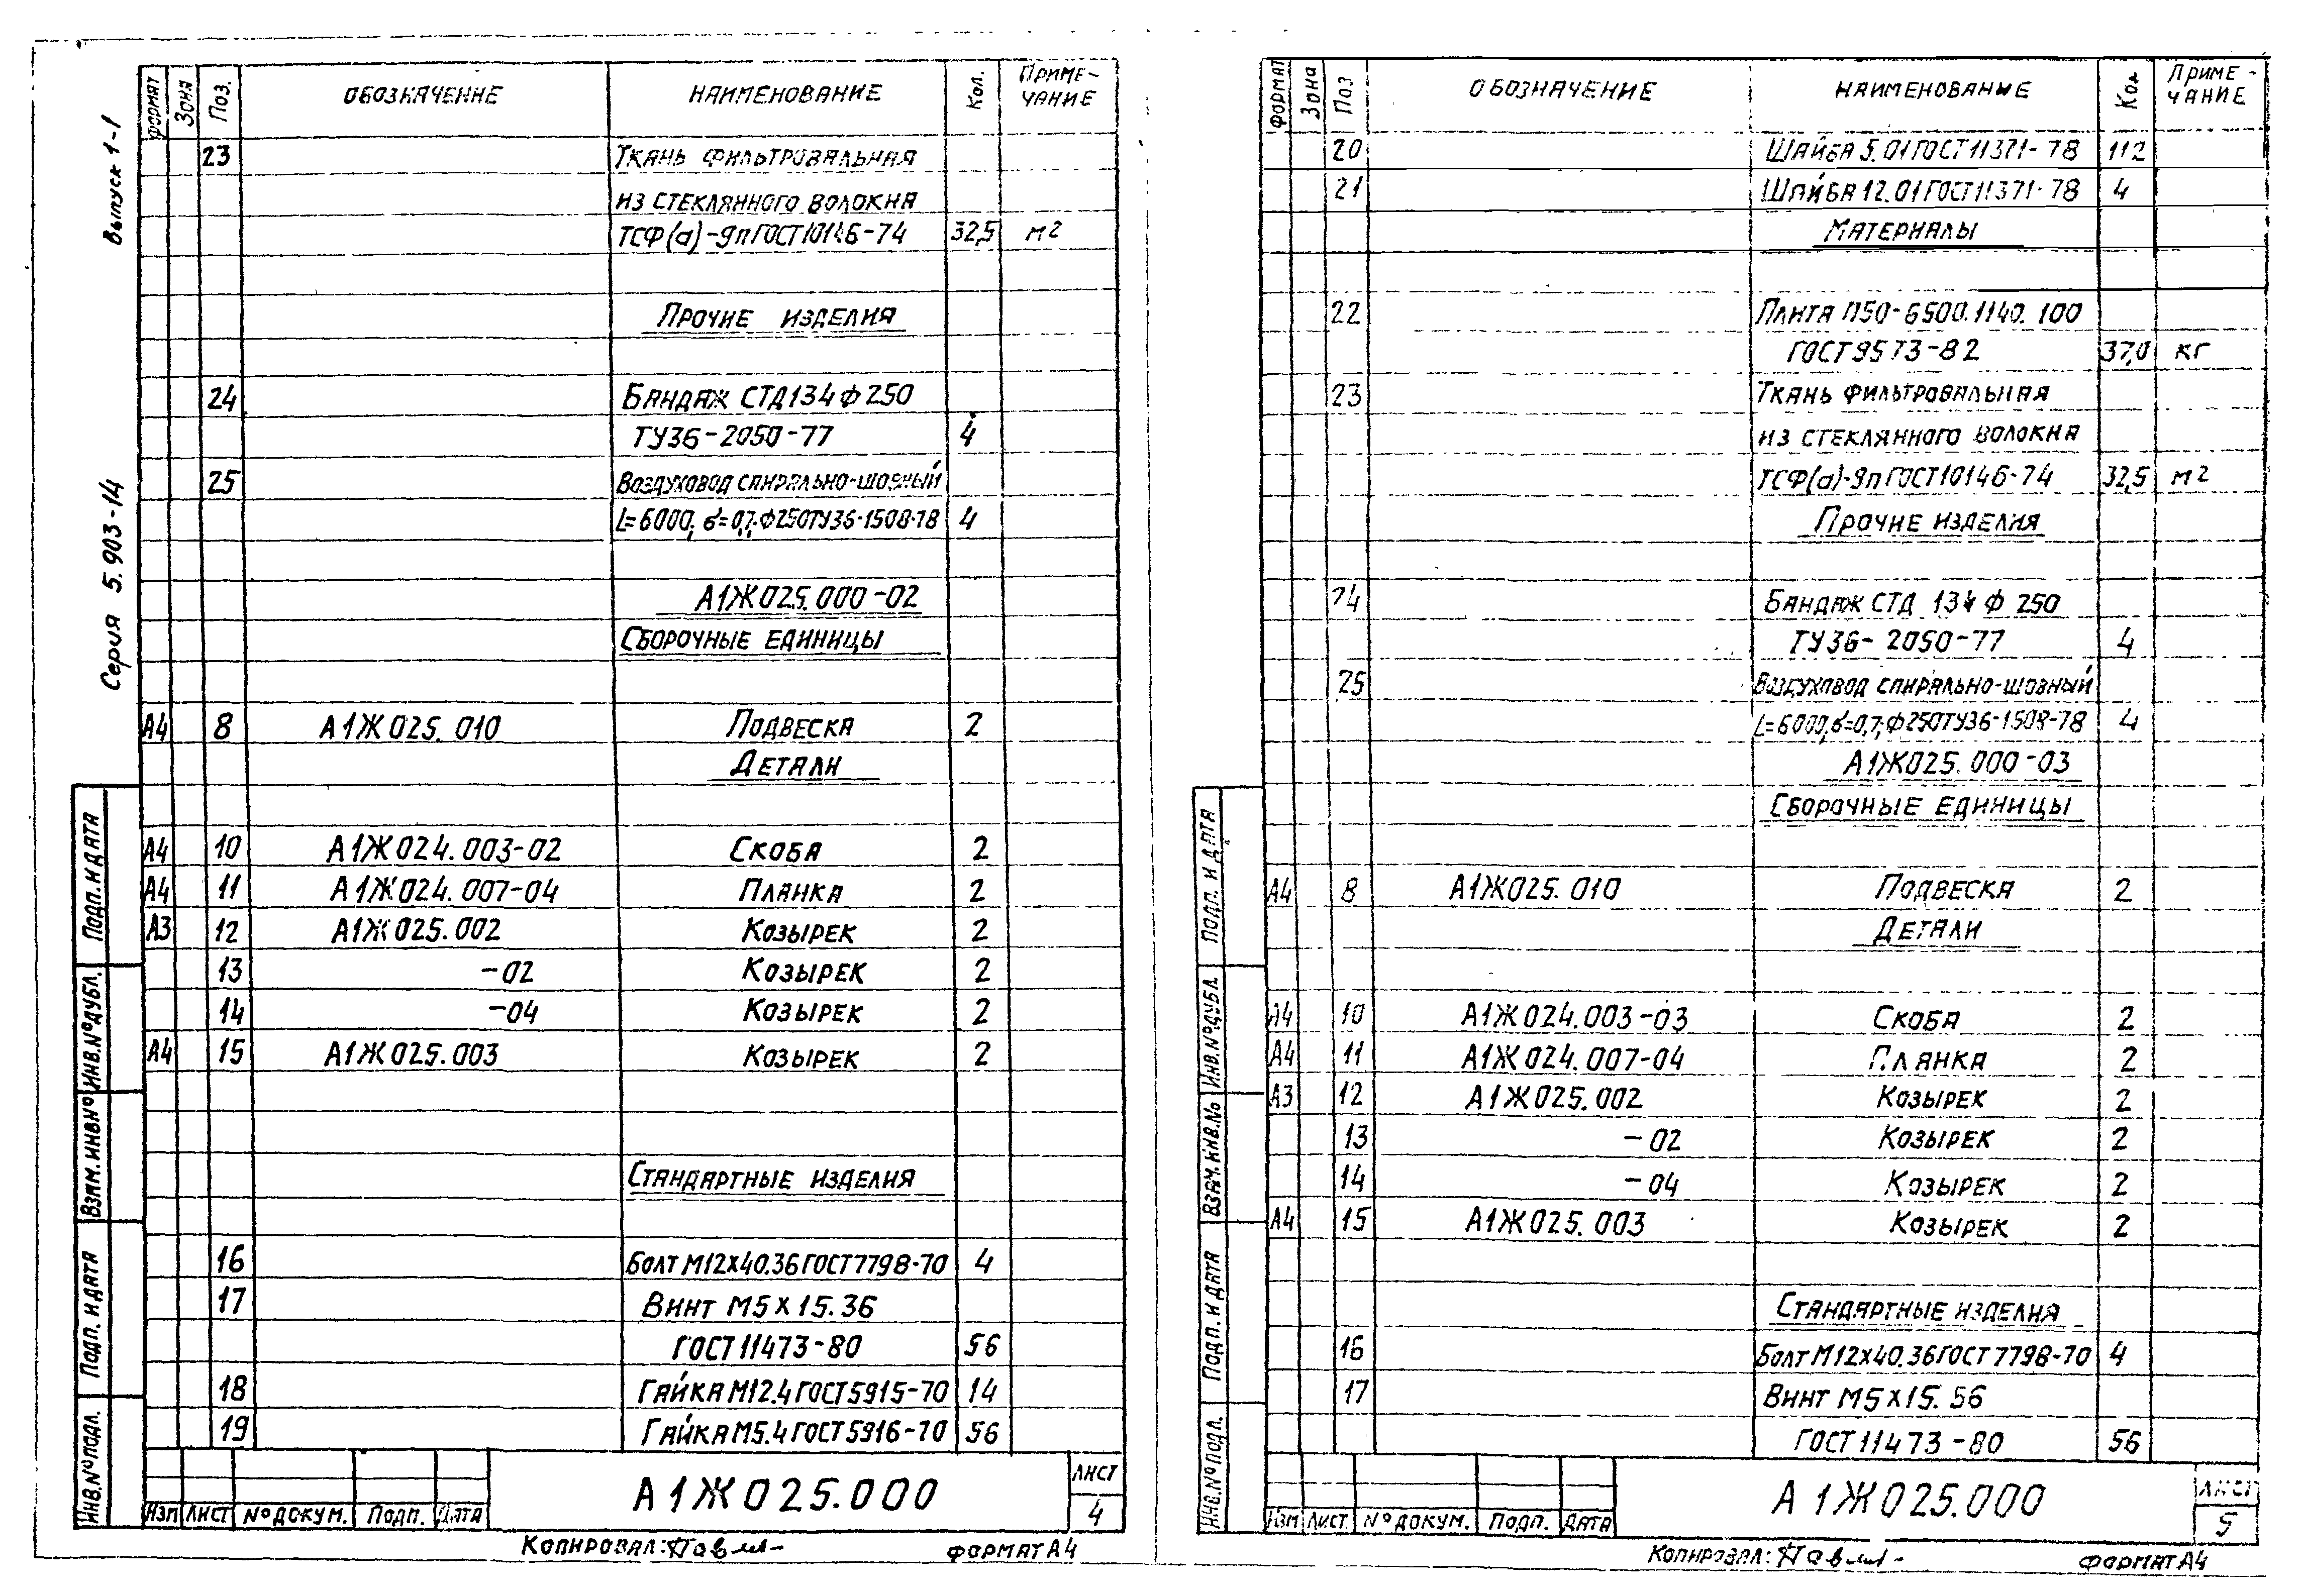 Выпуск 1-1
Серия 5.903-14
Формат Зона Поз. Обозначение Наименование Кол. Приме-
чание
23 Ткань фильтровальная
из стеклянного волокна
ТСФ(а)-9п ГОСТ 10146-74 32,5 м2
Прочие изделия
24 Бандаж СТД134 ф250
ТУ36-2050-77 4
25 Воздуховод спирально-шовный
L=6000; б=0,7; Ф250ТУ36-1508-78 4
А1Ж025.000-02
Сборочные единицы
А4 8 А1Ж025.010 Подвеска 2
Детали
А4 10 А1Ж024.003-02 Скоба 2
А4 11 А1Ж024.007-04 Планка 2
А3 12 А1Ж025.002 Козырек 2
13 -02 Козырек 2
14 -04 Козырек 2
А4 15 А1Ж025.003 Козырек 2
Стандартные изделия
16 Болт М12х40.36 ГОСТ 7798-70 4
17 Винт М5х15.36
ГОСТ 11473-80 56
18 Гайка М12.4 ГОСТ 5915-70 14
19 Гайка М5.4 ГОСТ 5916-70 56
Подп. и дата
Инв.№дубл.
Взам.инв.№
Подп. и дата
Инв.№подл.
Изм Лист №докум. Подп. Дата
А1Ж025.000
Лист
4
Копировал:
Формат А4
Формат Зона Поз Обозначение Наименование Кол Приме-
чание
20 Шайба 5.01 ГОСТ 11371-78 112
21 Шайба 12.01 ГОСТ 11371-78 4
Материалы
22 Плита П50-6500.1140.100
ГОСТ 9573-82 37,0 кг
23 Ткань фильтровальная
из стеклянного волокна
ТСФ(а)-9п ГОСТ 10146-74 32,5 м2
Прочие изделия
24 Бандаж СТД 134 Ф 250
ТУ36-2050-77 4
25 Воздуховод спирально-шовный
L=6000; б=0,7; Ф250ТУ36-1508-78 4
А1Ж025.000-03
Сборочные единицы
А4 8 А1Ж025.010 Подвеска 2
Детали
А4 10 А1Ж024.003-03 Скоба 2
А4 11 А1Ж024.007-04 Планка 2
А3 12 А1Ж025.002 Козырек 2
13 -02 Козырек 2
14 -04 Козырек 2
А4 15 А1Ж025.003 Козырек 2
Стандартные изделия
16 Болт М12х40.36 ГОСТ 7798-70 4
17 Винт М5х15.56
ГОСТ 11473-80 56
Подп. и дата
Инв.№дубл.
Взам.инв.№
Подп. и дата
Инв.№подл.
Изм Лист №докум. Подп. Дата
А1Ж025.000
Лист
5
Копировал:
Формат А4